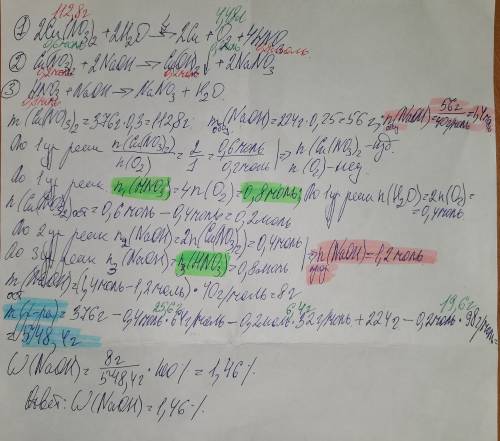 112,8г 4,48л
① 2Cu(NO₃)₂ + 2H₂O ⇝ 2Cu + O₂ + 4HNO₃
0,6моль 0,2м 0,8моль
② Cu(NO₃)₂ + 2NaOH → Cu(OH)₂↓ + 2NaNO₃
0,2моль 0,2моль
③ HNO₃ + NaOH → NaNO₃ + H₂O.
m(Cu(NO₃)₂) = 376г·0,3 = 112,8г. m(NaOH) = 224г·0,25 = 56г; n(NaOH) = 56г/40г/моль = 1,4моль
По 1 ур. реакц n(Cu(NO₃)₂)/n(O₂) = 2/1 = 0,6моль/0,2моль ⇒ n(Cu(NO₃)₂ - изб n(O₂) - нед.
По 1 ур реакц n₁(HNO₃) = 4n(O₂) = 0,8моль; По 1 ур реакц n(H₂O) = 2n(O₂) = 0,4моль.
n(Cu(NO₃)₂)ост = 0,6моль - 0,4моль = 0,2моль
По 2 ур реакц n₂(NaOH) = 2n(Cu(NO₃)₂) = 0,4моль
По 3 ур реакц n₃(NaOH) = n₃(HNO₃) = 0,8моль ⇒ n(NaOH) = 1,2моль
m(NaOH)ост = (1,4моль - 1,2моль)·40г/моль = 8г
25,6г 6,4г 19,6г
m(р-ра) = 376г - 0,4моль·64г/моль - 0,2моль·32г/моль + 224г - 0,2моль·98г/моль =
= 548,4г
W(NaOH) = 8г/548,4г · 100% = 1,46%.
Ответ: W(NaOH) = 1,46%.